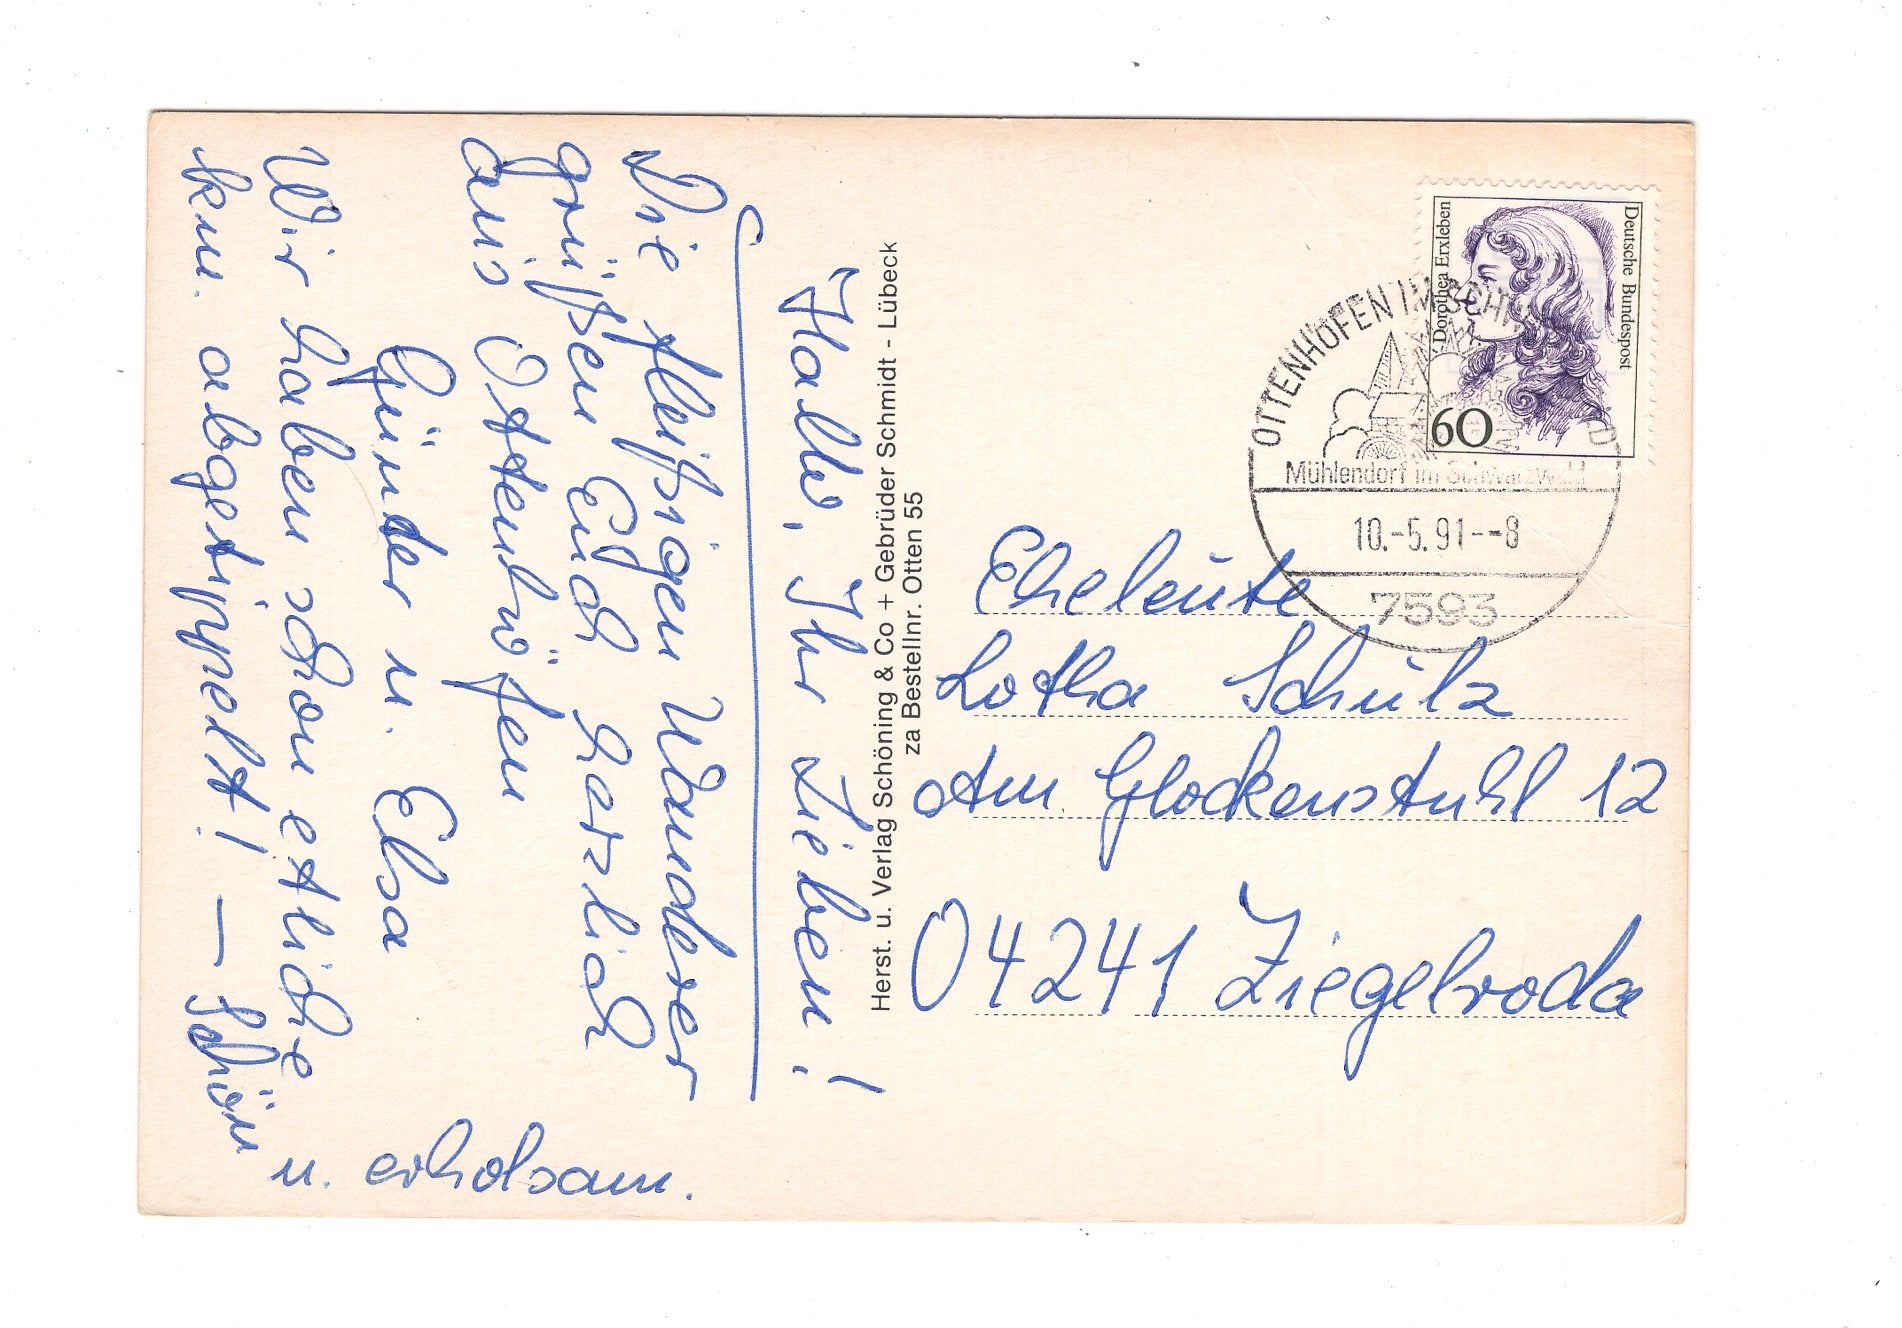 Hallo, Ihr Lieben!
Die fleißigen Wanderer
grüßen Euch herzlich
aus Ottenhöfen
Günter u. Elsa
Wir haben schon etliche
km. abgetippelt! — Schön
u. erholsam.
Herst. u. Verlag Schöning & Co + Gebrüder Schmidt - Lübeck
za Bestellnr. Otten 55
Deutsche Bundespost
Dorothea Erxleben
60
OTTENHÖFEN IM SCHWARZWALD
Mühlendorf im Schwarzwald
10.-5.91--8
7593
Eheleute
Lotha Schulz
Am Glockenstuhl 12
04241 Ziegelroda